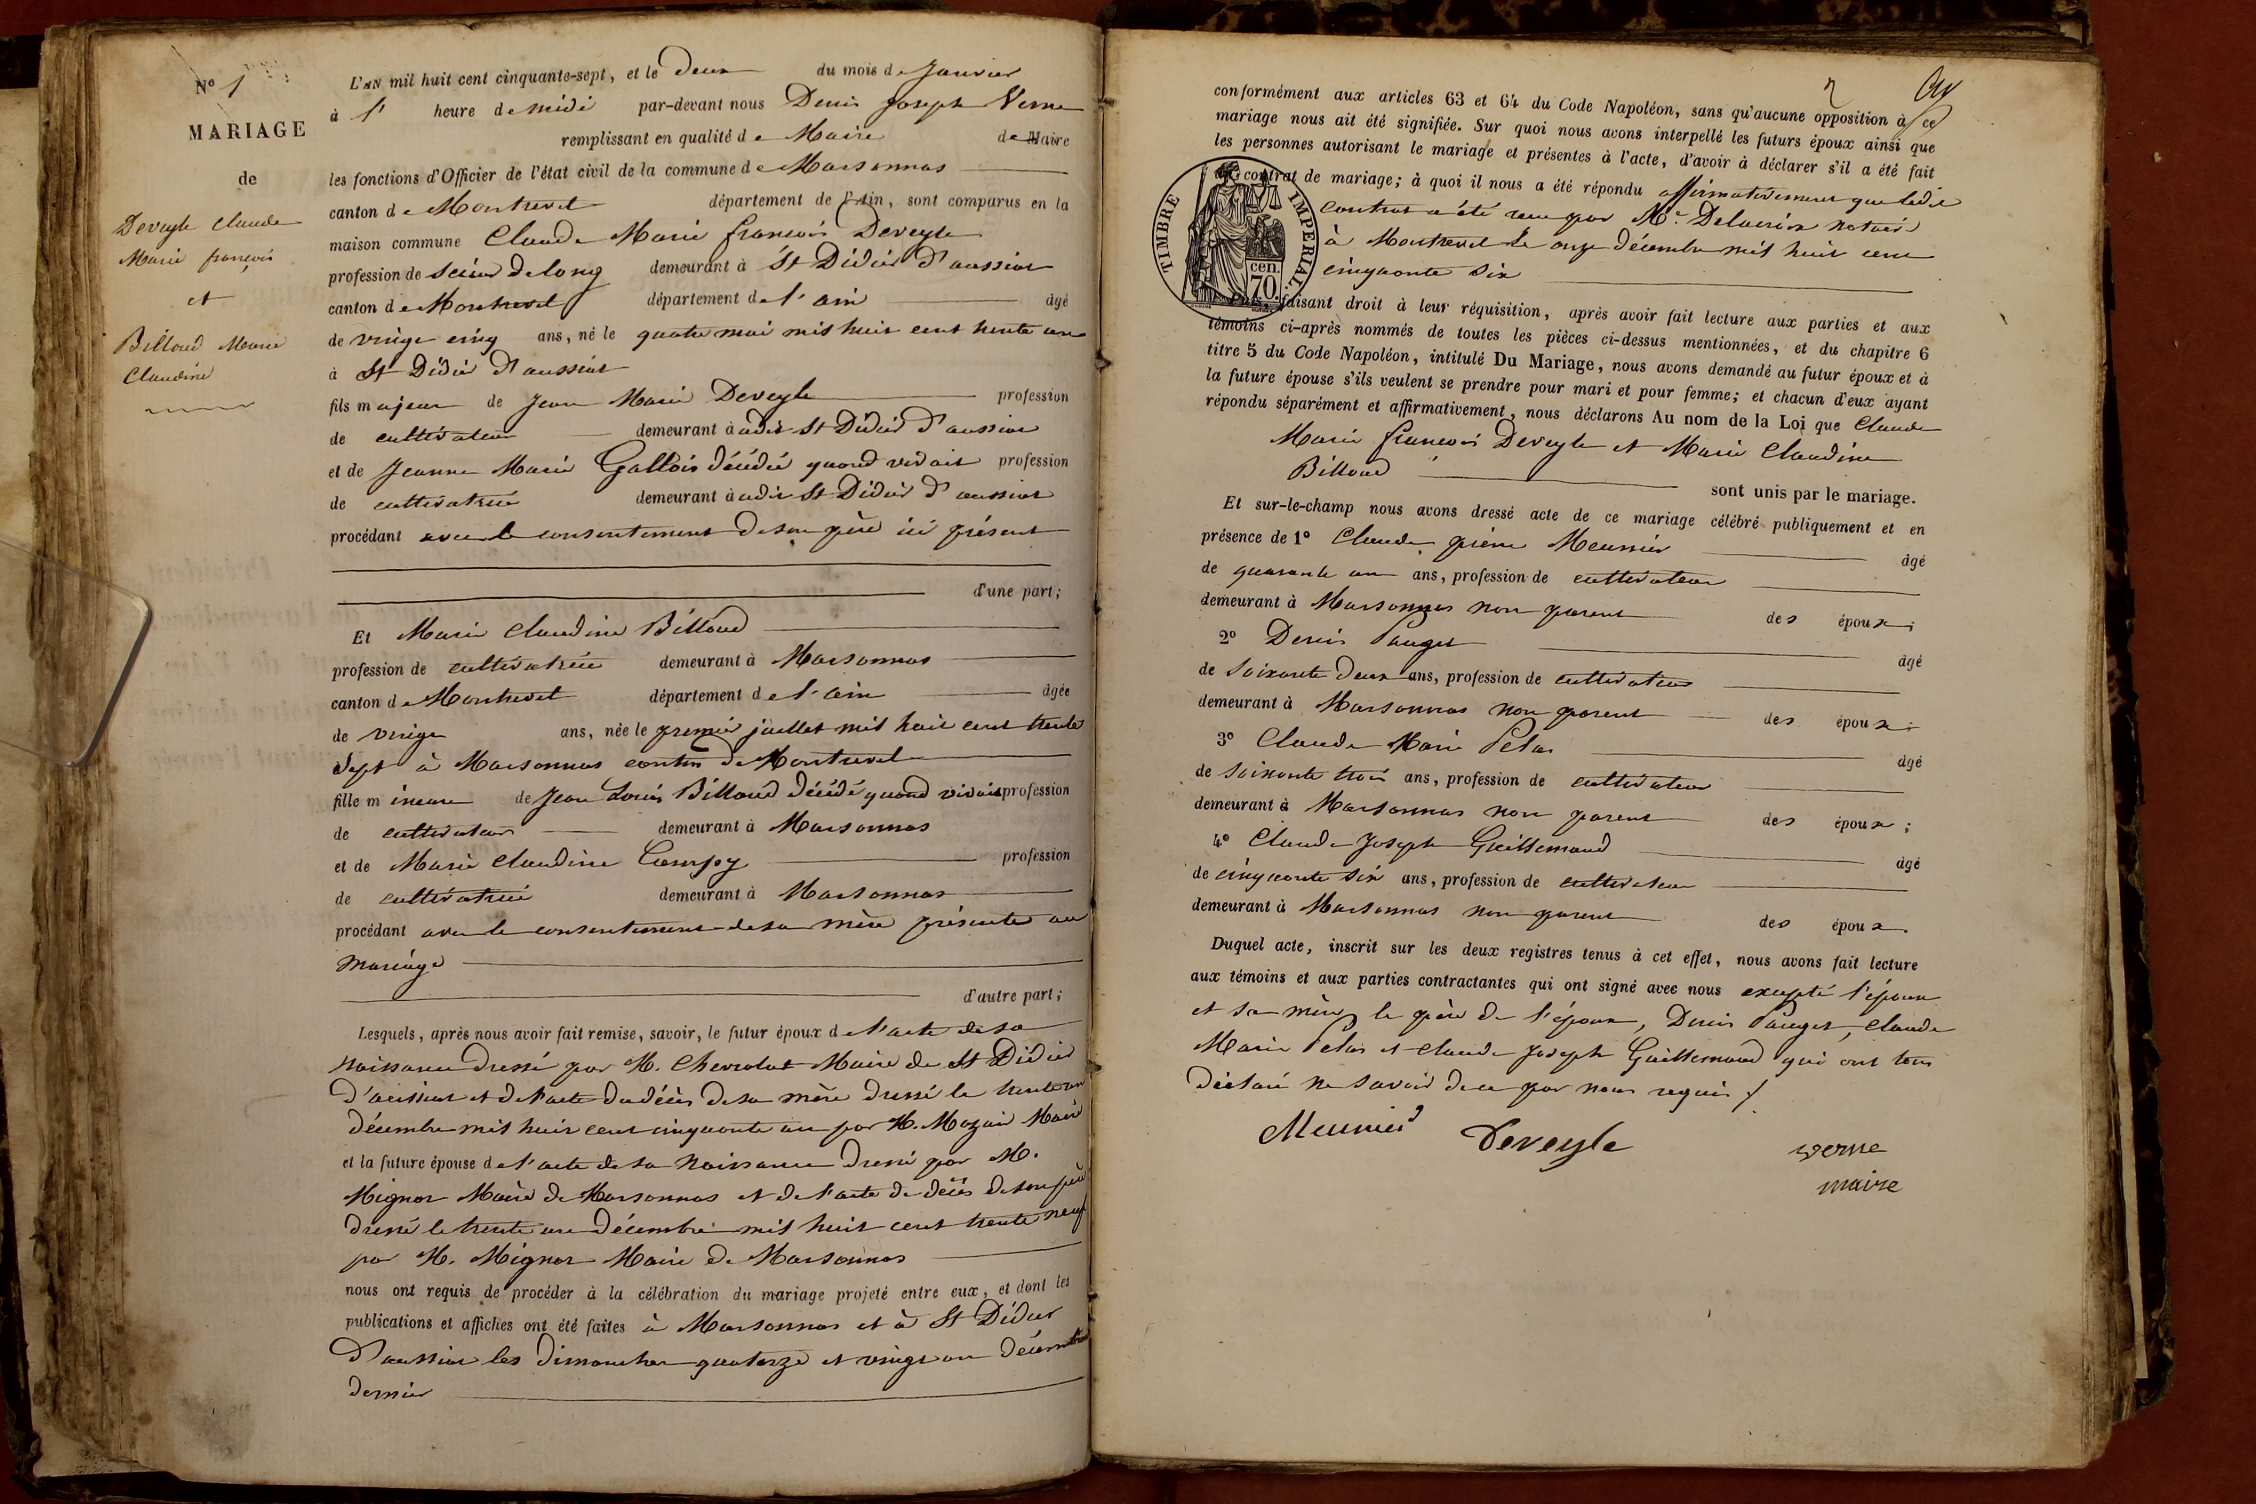 N° 1
MARIAGE
de
Deveyle Claude
Marie françois
et
Billoud Marie
Claudine
L'AN mil huit cent cinquante-sept, et le deux du mois de Janvier
à 1' heure de midi par-devant nous Denis Joseph Verne
remplissant en qualité de Maire de Maire
les fonctions d'Officier de l'état civil de la commune de Marsonnas
canton de Montrevel département de l'Ain, sont comparus en la
maison commune Claude Marie françois Deveyle
profession de scieur de long demeurant à St Didier d'aussiat
canton de Montrevel département de l'ain âgé
de vingt cinq ans, né le quatre mai mil huit cent trente un
à St Didier d'aussiat
fils majeur de Jean Marie Deveyle profession
de cultivateur demeurant à udit St Didier d'aussiat
et de Jeanne Marie Gallois décédée quand vivait profession
de cultivatrice demeurant à udit St Didier d'aussiat
procédant avec le consentement de son père ici présent
d'une part;
Et Marie Claudine Billoud
profession de cultivatrice demeurant à Marsonnas
canton de Montrevel département de l'ain âgée
de vingt ans, née le premier juillet mil huit cent trente
sept à Marsonnas canton de Montrevel
fille mineure de Jean Louis Billoud décédé quand vivait profession
de cultivateur demeurant à Marsonnas
et de Marie Claudine profession
de cultivatrice demeurant à Marsonnas
procédant avec le consentement de sa mère présente au
mariage
d'autre part;
Lesquels, après nous avoir fait remise, savoir, le futur époux de l'acte de sa
naissance dressé par M. Chevrolat Maire de St Didier
d'aussiat et de l'acte du décès de sa mère dressé le trente un
décembre mil huit cent cinquante un par M. Maire
et la future épouse de l'acte de sa naissance dressé par M.
Mignot Maire de Marsonnas et de l'acte de décès de son père
dressé le trente un décembre mil huit cent trente neuf
par M. Mignot Maire de Marsonnas
nous ont requis de procéder à la célébration du mariage projeté entre eux, et dont les
publications et affiches ont été faites à Marsonnas et à St Didier
d'aussiat les dimanches quatorze et vingt un décembre
dernier
2
conformément aux articles 63 et 64 du Code Napoléon, sans qu'aucune opposition à ce
mariage nous ait été signifiée. Sur quoi nous avons interpellé les futurs époux ainsi que
les personnes autorisant le mariage et présentes à l'acte, d'avoir à déclarer s'il a été fait
contrat de mariage; à quoi il nous a été répondu affirmativement que ledit
contrat a été reçu par Me Delacroix notaire
à Montrevel le onze décembre mil huit cent
cinquante six
TIMBRE IMPERIAL
70 cen.
faisant droit à leur réquisition, après avoir fait lecture aux parties et aux
témoins ci-après nommés de toutes les pièces ci-dessus mentionnées, et du chapitre 6
titre 5 du Code Napoléon, intitulé Du Mariage, nous avons demandé au futur époux et à
la future épouse s'ils veulent se prendre pour mari et pour femme; et chacun d'eux ayant
répondu séparément et affirmativement, nous déclarons Au nom de la Loi que Claude
Marie francois Deveyle et Marie Claudine
Billoud
sont unis par le mariage.
Et sur-le-champ nous avons dressé acte de ce mariage célébré publiquement et en
présence de 1° Claude pierre Meunier âgé
de quarante un ans, profession de cultivateur
demeurant à Marsonnas non parent des époux;
2° Denis Pauget âgé
de soixante deux ans, profession de cultivateur
demeurant à Marsonnas non parent des époux;
3° Claude Marie Pelus âgé
de soixante trois ans, profession de cultivateur
demeurant à Marsonnas non parent des époux;
4° Claude Joseph Guillemaud âgé
de cinquante six ans, profession de cultivateur
demeurant à Marsonnas non parent des époux.
Duquel acte, inscrit sur les deux registres tenus à cet effet, nous avons fait lecture
aux témoins et aux parties contractantes qui ont signé avec nous excepté l'épouse
et sa mère, le père de l'époux, Denis Pauget, Claude
Marie Pelus et Claude Joseph Guillemaud qui ont tous
déclaré ne savoir de ce par nous requis
Meunier Deveyle verne
maire